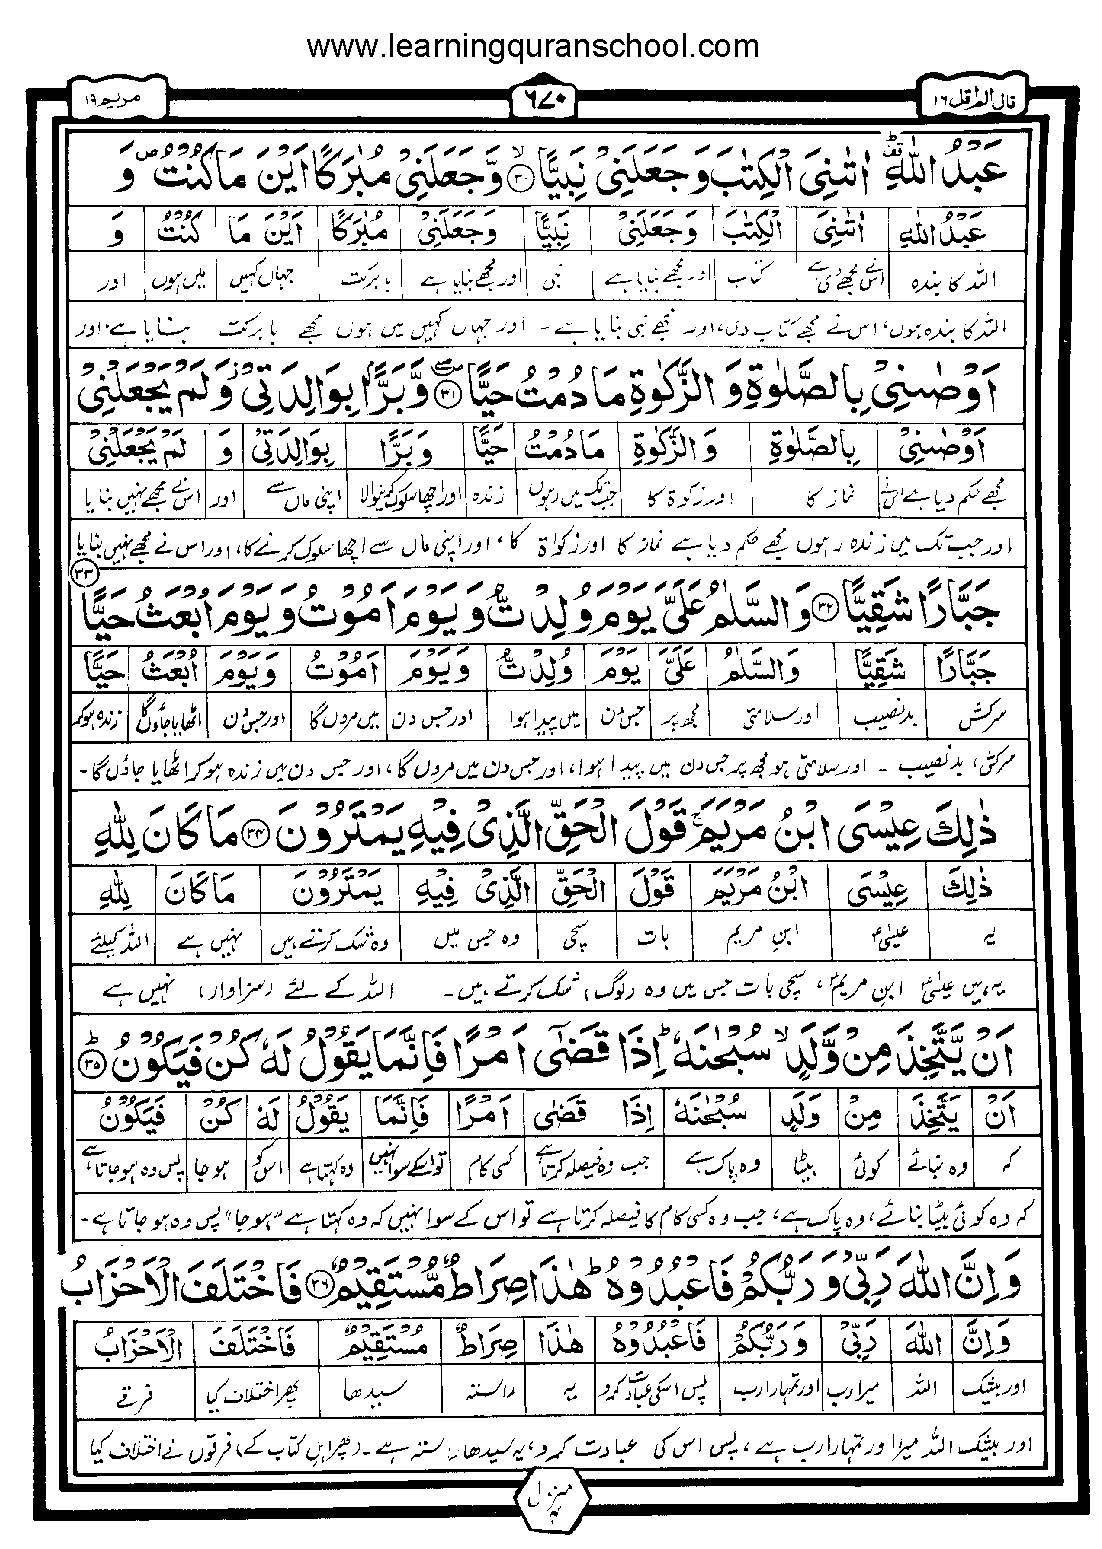 www.learningquranschool.com
مریم ۱۹
۶۷۰
قال الم ۱۶
عَبْدُ اللّٰهِ ۗ اٰتٰىنِیَ الْكِتٰبَ وَ جَعَلَنِیْ نَبِیًّا ۙ ۳۰ وَّ جَعَلَنِیْ مُبٰرَكًا اَیْنَ مَا كُنْتُ ۪ وَ
عَبْدُ اللّٰهِ اٰتٰىنِیَ الْكِتٰبَ وَ جَعَلَنِیْ نَبِیًّا وَ جَعَلَنِیْ مُبٰرَكًا اَیْنَ مَا كُنْتُ وَ
اللہ کا بندہ اس نے مجھے دی ہے کتاب اور مجھے بنایا ہے نبی اور مجھے بنایا ہے بابرکت جہاں کہیں میں ہوں اور
اللہ کا بندہ ہوں، اس نے مجھے کتاب دی، اور مجھے نبی بنایا ہے۔ اور جہاں کہیں میں ہوں مجھے بابرکت بنایا ہے، اور
اَوْصٰنِیْ بِالصَّلٰوةِ وَ الزَّكٰوةِ مَا دُمْتُ حَیًّا ۳۱ وَّ بَرًّۢا بِوَالِدَتِیْ ؗ وَ لَمْ یَجْعَلْنِیْ
اَوْصٰنِیْ بِالصَّلٰوةِ وَ الزَّكٰوةِ مَا دُمْتُ حَیًّا وَ بَرًّا بِوَالِدَتِیْ وَ لَمْ یَجْعَلْنِیْ
مجھے حکم دیا ہے اس نے نماز کا اور زکوٰة کا جب تک میں رہوں زندہ اور اچھا سلوک کرنیوالا اپنی ماں سے اور اس نے مجھے نہیں بنایا
اور جب تک میں زندہ رہوں مجھے حکم دیا ہے نماز کا اور زکواة کا، اور اپنی ماں سے اچھا سلوک کرنے کا، اور اس نے مجھے نہیں بنایا
جَبَّارًا شَقِیًّا ۳۲ وَ السَّلٰمُ عَلَیَّ یَوْمَ وُلِدْتُّ وَ یَوْمَ اَمُوْتُ وَ یَوْمَ اُبْعَثُ حَیًّا ۳۳
جَبَّارًا شَقِیًّا وَ السَّلٰمُ عَلَیَّ یَوْمَ وُلِدْتُّ وَ یَوْمَ اَمُوْتُ وَ یَوْمَ اُبْعَثُ حَیًّا
سرکش بدنصیب اور سلامتی مجھ پر جس دن میں پیدا ہوا اور جس دن میں مروں گا اور جس دن اٹھایا جاؤں گا زندہ ہو کر
سرکش، بدنصیب ۔ اور سلامتی ہو مجھ پر جس دن میں پیدا ہوا، اور جس دن میں مروں گا، اور جس دن میں زندہ ہو کر اٹھایا جاؤں گا۔
ذٰلِكَ عِیْسَی ابْنُ مَرْیَمَ ۚ قَوْلَ الْحَقِّ الَّذِیْ فِیْهِ یَمْتَرُوْنَ ۳۴ مَا كَانَ لِلّٰهِ
ذٰلِكَ عِیْسَی ابْنُ مَرْیَمَ قَوْلَ الْحَقِّ الَّذِیْ فِیْهِ یَمْتَرُوْنَ مَا كَانَ لِلّٰهِ
یہ عیسیٰؑ ابن مریم بات سچی وہ جس میں وہ شک کرتے ہیں نہیں ہے اللہ کیلئے
یہ ہیں عیسیٰؑ ابن مریمؑ، سچی بات جس میں وہ (لوگ) شک کرتے ہیں۔ اللہ کے لئے (سزاوار) نہیں ہے
اَنْ یَّتَّخِذَ مِنْ وَّلَدٍ ۙ سُبْحٰنَهٗ ؕ اِذَا قَضٰۤی اَمْرًا فَاِنَّمَا یَقُوْلُ لَهٗ كُنْ فَیَكُوْنُ ؕ ۳۵
اَنْ یَتَّخِذَ مِنْ وَلَدٍ سُبْحٰنَهٗ اِذَا قَضٰۤی اَمْرًا فَاِنَّمَا یَقُوْلُ لَهٗ كُنْ فَیَكُوْنُ
کہ وہ بنائے کوئی بیٹا وہ پاک ہے جب وہ فیصلہ کرتا ہے کسی کام تو اسکے سوا نہیں وہ کہتا ہے اس کو ہو جا پس وہ ہو جاتا ہے
کہ وہ کوئی بیٹا بنائے، وہ پاک ہے، جب وہ کسی کام کا فیصلہ کرتا ہے تو اس کے سوا نہیں کہ وہ کہتا ہے "ہوجا" پس وہ ہو جاتا ہے۔
وَ اِنَّ اللّٰهَ رَبِّیْ وَ رَبُّكُمْ فَاعْبُدُوْهُ ؕ هٰذَا صِرَاطٌ مُّسْتَقِیْمٌ ۳۶ فَاخْتَلَفَ الْاَحْزَابُ
وَ اِنَّ اللّٰهَ رَبِّیْ وَ رَبُّكُمْ فَاعْبُدُوْهُ هٰذَا صِرَاطٌ مُسْتَقِیْمٌ فَاخْتَلَفَ الْاَحْزَابُ
اور بیشک اللہ میرا رب اور تمہارا رب پس اسکی عبادت کرو یہ راستہ سیدھا پھر اختلاف کیا فرقے
اور بیشک اللہ میرا اور تمہارا رب ہے، پس اس کی عبادت کرو، یہ سیدھا راستہ ہے۔ (پھر اہل کتاب کے) فرقوں نے اختلاف کیا
منزل ۴